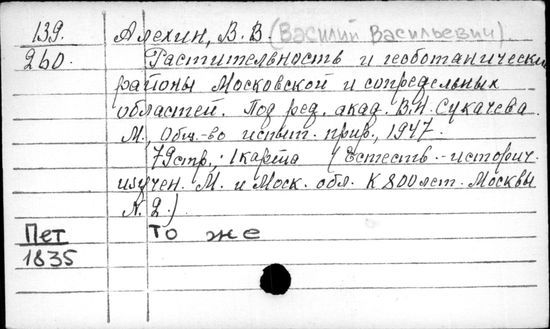 139. Алехин, В. В. (Василий Васильевич)
260. Растительность и геоботанически
районы Московской и сопредельных
областей. Под ред. акад. В.Н. Сукачева.
М., Общ-во испыт. прир., 1947.
79 стр., 1 карта (Естеств.-историч.
изучен. М. и Моск. обл. К 800 лет. Москвы
N. 2.)
Пет То же
1835